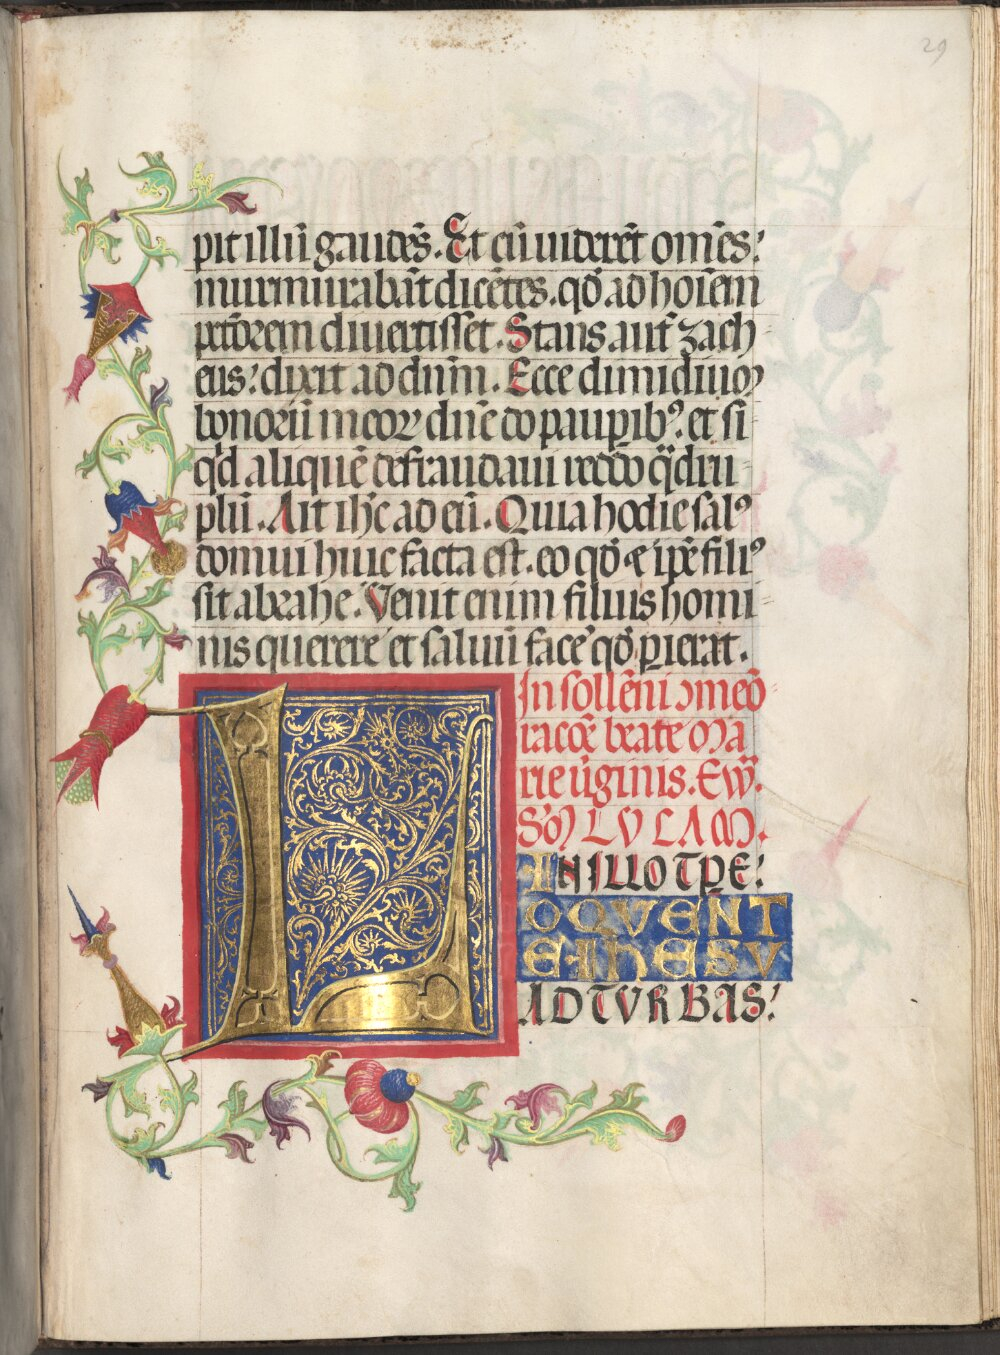 29
pit illū gaudēs. Et cū uiderēt om̄es:
murmurabāt dicētes. qď ad hoīem
pctōrem diuertisset. Stans aut̄ zach
eus: dixit ad dūm. Ecce dimidium
bonorū meoꝝ dn̄e do paupibꝰ: et si
qd aliquē defraudaui reddo qdru=
plū. Ait ihc̄ ad eū. Quia hodie salꝰ
domui huic facta est. eo qď ⁊ ip̄e filiꝰ
sit abrahe. Venit enim filius homi=
nis querere et saluū face qď pierat.
In sollēni ɔmeō
racōē beate Ma
rie ūginis. Ew̄.
S'm LVCAM.
IN ILLO TP̄E:
LOQVENT
E IHESV
AD TVRBAS: